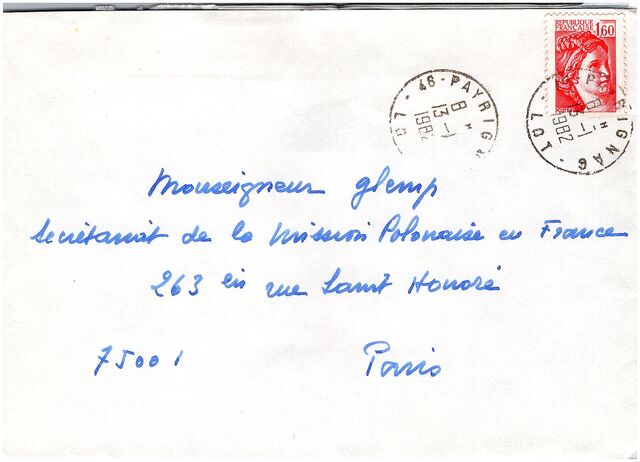 REPUBLIQUE FRANÇAISE 1,60
46-PAYRIGNAC - LOT
8 H
13-1
1982
46-PAYRIGNAC - LOT
8 H
13-1
1982
Monseigneur Glemp
Secrétariat de la Mission Polonaise en France
263 bis rue Saint Honoré
75001 Paris